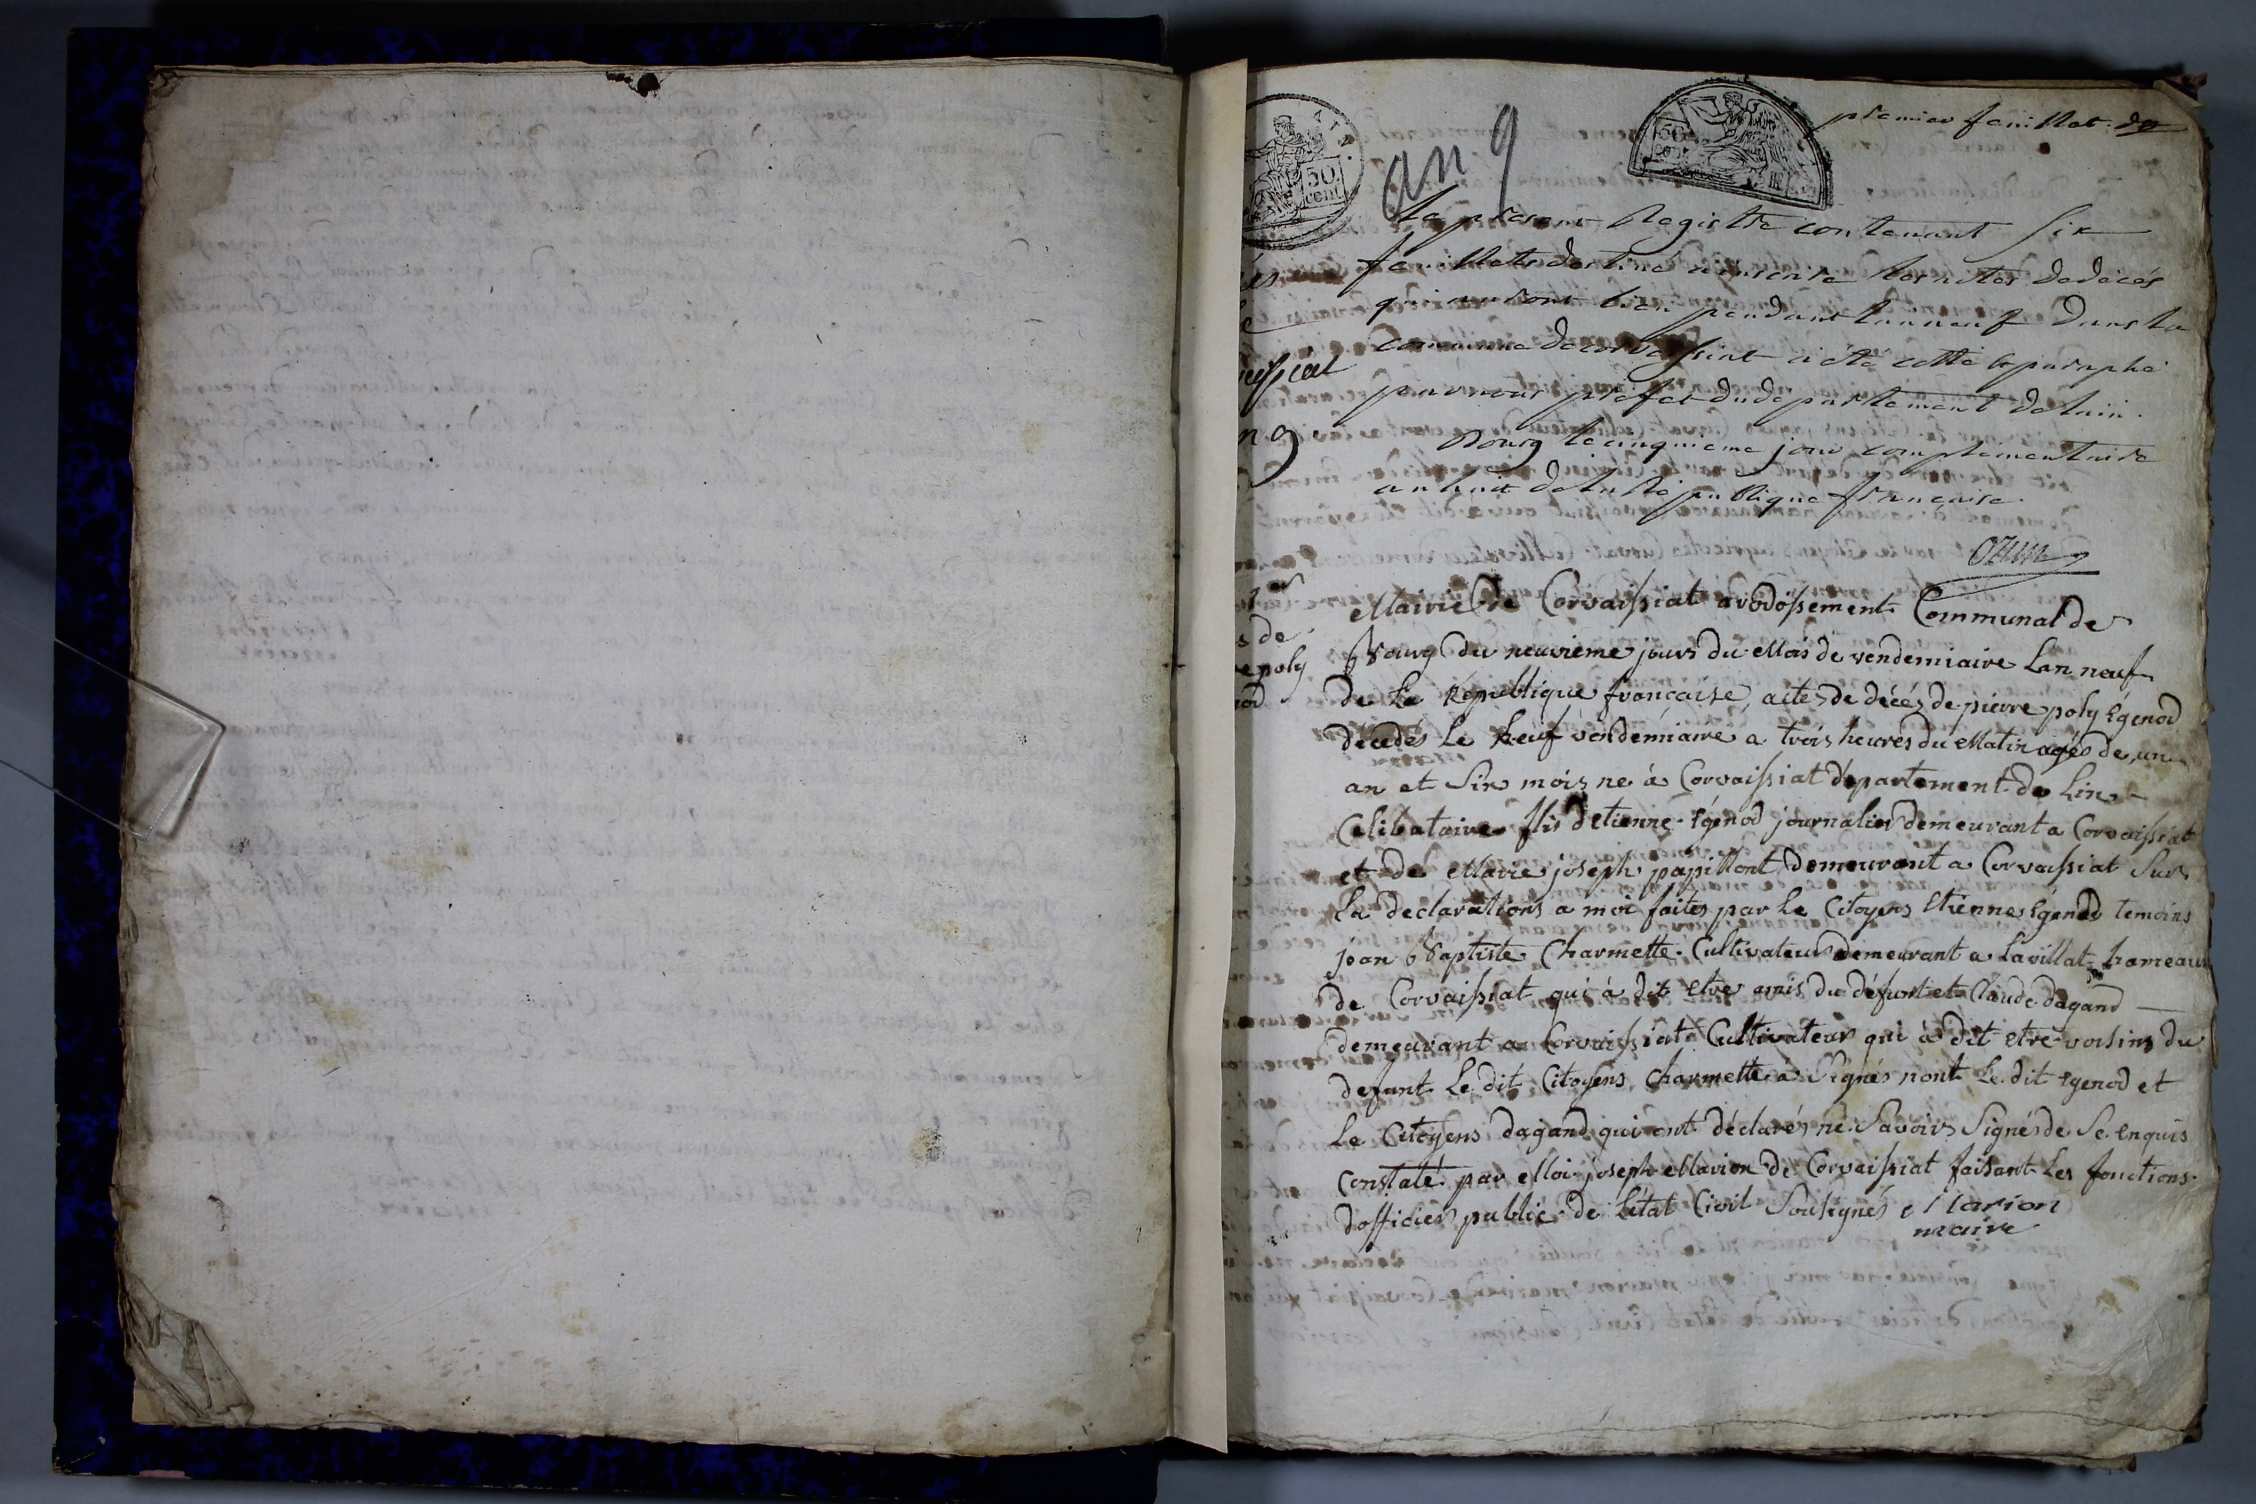 premier feuillet
50 cent
an 9
Le présent Registre contenant Six
feuillets destiné a inscrire les actes de décés
qui auront lieu pendant l'an neuf dans la
commune de corvessiat a été cotté & paraphé
par nous préfet du département de lain.
Bourg le cinquieme jour complementaire
an huit de la République française.
Ozun
n 9
s de
poly
Mairie De Corvaissiat arodossement Communal de
Bourg Du neuvieme jours du Mois de vendemiaire Lan neuf
de La République francaise, actes de décés de pierre poly Egenod
décédés Le Neuf vendémiaire a trois heures du Matin agés de un
an et Six mois ne à Corvaissiat département de Lin
Celibataire flis d'etienne Egenod journalier demeurant a Corvaissiat
et de Marie joseph papillont demeurant a Corvaissiat Sur
La declarations a moi faites par Le Citoyens Etiennes Egenod temoins
jean Baptiste Charmette Cultivateur demeurant a Lavillat hameaux
de Corvaissiat qui à dit Etre amis du défunt et Claude dagand
demeurant a Corvaissiat Cultivateur qui à dit etre voisins du
defunt Le dit Citoyens Charmette à Signés nont Le dit Egenod et
Le Citoyens dagand qui ont déclarés ne Savoirs Signés de Se Enquis
Constaté par Moi joseph Marion De Corvaissiat faisant Les fonctions
dofficier public de Létat Civil Sousignés Marion
maire